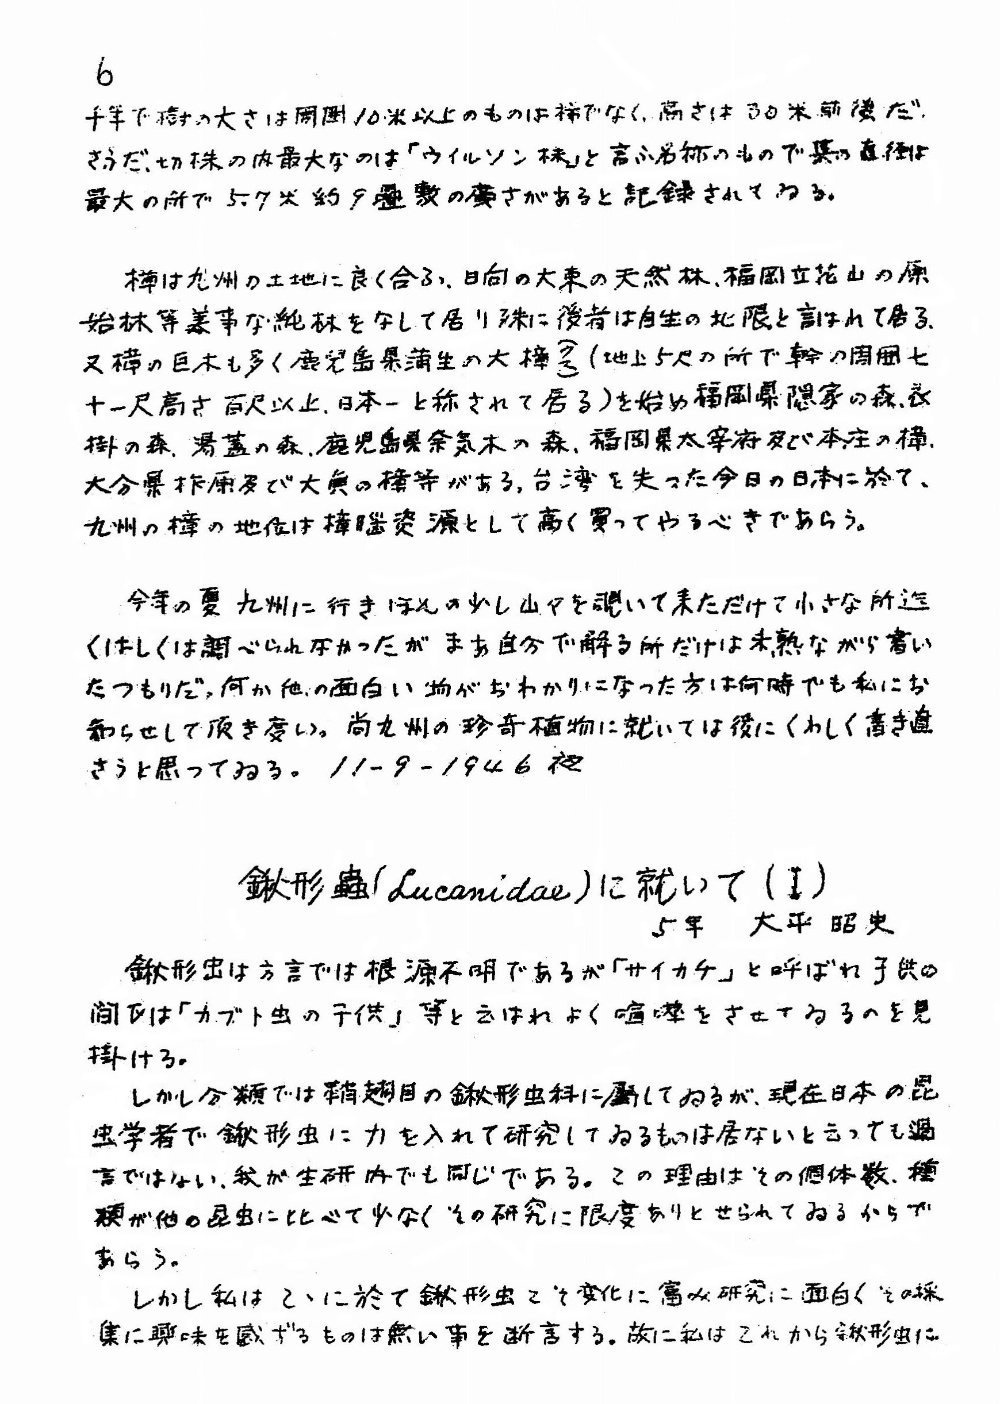 6
千年で樹の大さは周囲10米以上のものは稀でなく、高さは30米前後だ
さうだ、切株の内最大なのは「ウイルソン株」と言ふ名称のもので其の直径は
最大の所で5.7米約9畳敷の廣さがあると記録されてゐる。
樟は九州の土地に良く合ふ、日向の大東の天然林、福岡立花山の原
始林等美事な純林をなして居り殊に後者は自生の北限と言はれて居る、
又樟の巨木も多く鹿児島県蒲生の大樟(クス)(地上5尺の所で幹の周囲七
十一尺高さ百尺以上、日本一と称されて居る)を始め福岡県隠家の森、衣
掛の森、湯蓋の森、鹿児島縣奈気木の森、福岡県太宰府及び本庄の樟、
大分県柞原及び大眞の樟等がある、台湾を失つた今日の日本に於て、
九州の樟の地位は樟脳資源として高く買つてやるべきであらう。
今年の夏九州に行きほんの少し山々を覗いて来ただけで小さな所迄
くはしくは調べられなかつたがまあ自分で解る所だけは未熟ながら書い
たつもりだ、何か他の面白い物がおわかりになった方は何時でも私にお
知らせして頂き度い。尚九州の珍奇植物に就いては後にくわしく書き直
さうと思つてゐる。 11-9-1946 夜
鍬形蟲(Lucanidae)に就いて(I)
5年 大平昭史
鍬形虫は方言では根源不明であるが「サイカチ」と呼ばれ子供の
間では「カブト虫の子供」等と云はれよく喧嘩をさせてゐるのを見
掛ける。
しかし分類では鞘翅目の鍬形虫科に属してゐるが、現在日本の昆
虫学者で鍬形虫に力を入れて研究してゐるものは居ないと云っても過
言ではない、我が生研内でも同じである。この理由はその個体数、種
類が他の昆虫に比べて少なくその研究に限度ありとせられてゐるからで
あらう。
しかし私はこゝに於て鍬形虫こそ変化に富み研究に面白くその採
集に興味を感ぜざるものは無い事を断言する。故に私はこれから鍬形虫に